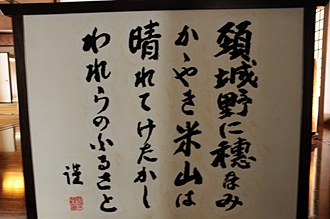 頸城野に穂なみ
かゞやき米山は
晴れてけたかし
われらのふるさと
謹